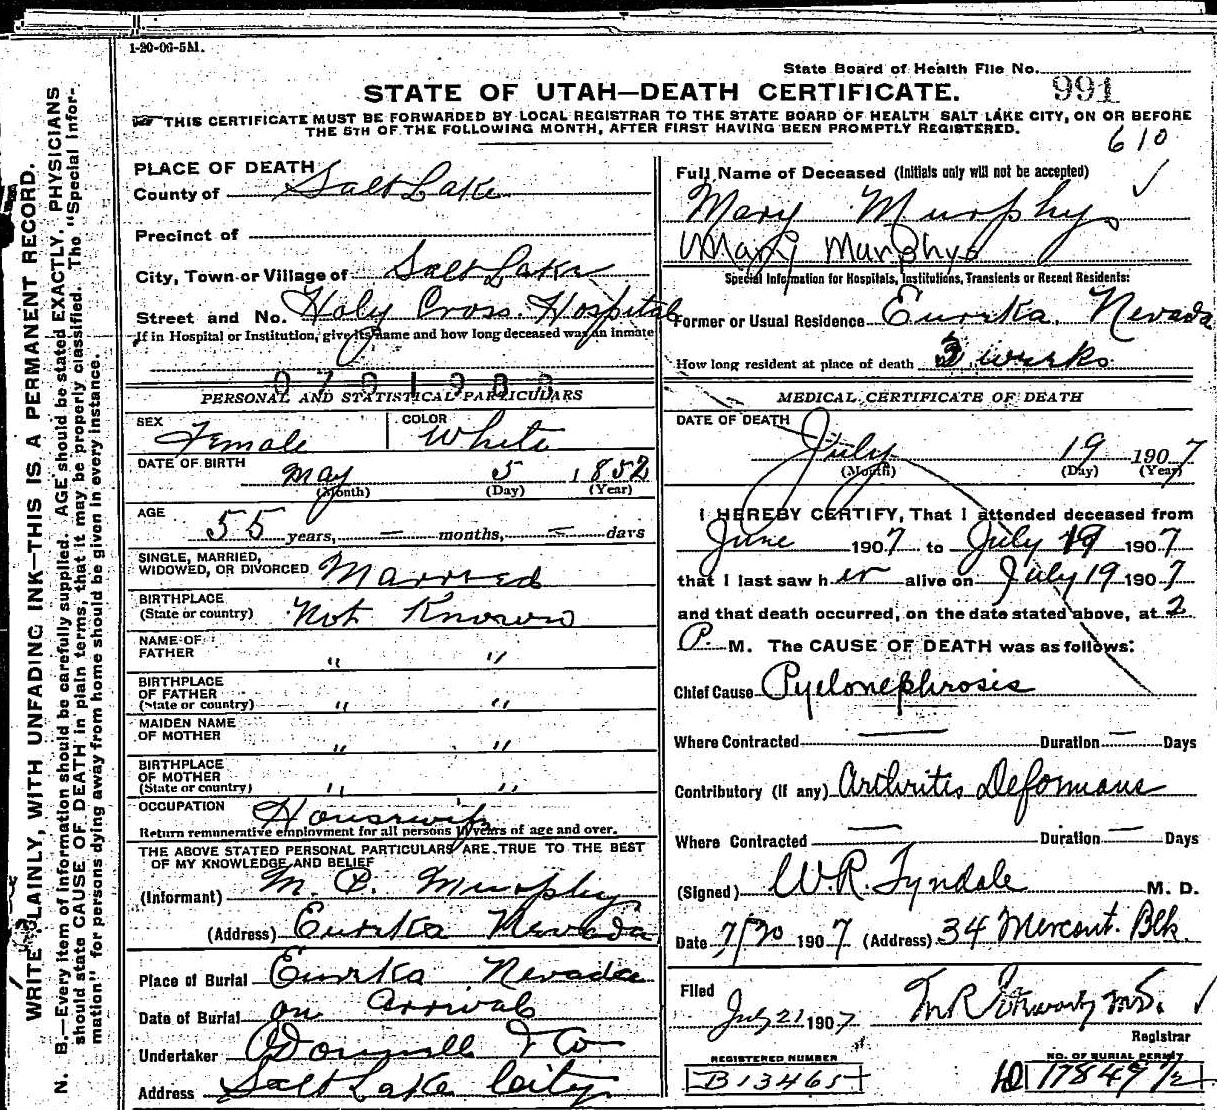 1-20-06-5M.
State Board of Health File No. 991
STATE OF UTAH—DEATH CERTIFICATE.
THIS CERTIFICATE MUST BE FORWARDED BY LOCAL REGISTRAR TO THE STATE BOARD OF HEALTH SALT LAKE CITY, ON OR BEFORE
THE 5TH OF THE FOLLOWING MONTH, AFTER FIRST HAVING BEEN PROMPTLY REGISTERED.
610
WRITE PLAINLY, WITH UNFADING INK—THIS IS A PERMANENT RECORD.
N. B.—Every item of information should be carefully supplied. AGE should be stated EXACTLY. PHYSICIANS
should state CAUSE OF DEATH in plain terms, that it may be properly classified. The "Special Infor-
mation" for persons dying away from home should be given in every instance.
PLACE OF DEATH
County of Salt Lake
Precinct of
City, Town or Village of Salt Lake
Street and No. Holy Cross Hospital
If in Hospital or Institution, give its name and how long deceased was an inmate
0701983
PERSONAL AND STATISTICAL PARTICULARS
SEX Female COLOR White
DATE OF BIRTH May 5 1852
(Month) (Day) (Year)
AGE 55 years, — months, — days
SINGLE, MARRIED,
WIDOWED, OR DIVORCED Married
BIRTHPLACE
(State or country) Not Known
NAME OF
FATHER " "
BIRTHPLACE
OF FATHER
(State or country) " "
MAIDEN NAME
OF MOTHER " "
BIRTHPLACE
OF MOTHER
(State or country) " "
OCCUPATION Housewife
Return remunerative employment for all persons 10 years of age and over.
THE ABOVE STATED PERSONAL PARTICULARS ARE TRUE TO THE BEST
OF MY KNOWLEDGE AND BELIEF
(Informant) M. P. Murphy
(Address) Eureka Nevada
Place of Burial Eureka Nevada
Date of Burial on Arrival
Undertaker O'Donnell & Co
Address Salt Lake City
Full Name of Deceased (Initials only will not be accepted)
Mary Murphy
Mary Murphy
Special Information for Hospitals, Institutions, Transients or Recent Residents:
Former or Usual Residence Eureka. Nevada
How long resident at place of death 3 weeks
MEDICAL CERTIFICATE OF DEATH
DATE OF DEATH
July 19 1907
(Month) (Day) (Year)
I HEREBY CERTIFY, That I attended deceased from
June 1907 to July 19 1907
that I last saw her alive on July 19 1907
and that death occurred, on the date stated above, at 2
P. M. The CAUSE OF DEATH was as follows:
Chief Cause Pyelonephrosis
Where Contracted — Duration — Days
Contributory (if any) Arthritis Deformans
Where Contracted — Duration — Days
(Signed) W. R. Tyndale M. D.
Date 7/20 1907 (Address) 34 Mercant. Blk.
Filed
July 21 1907
Registrar
REGISTERED NUMBER
B13465
NO. OF BURIAL PERMIT
17849 1/2